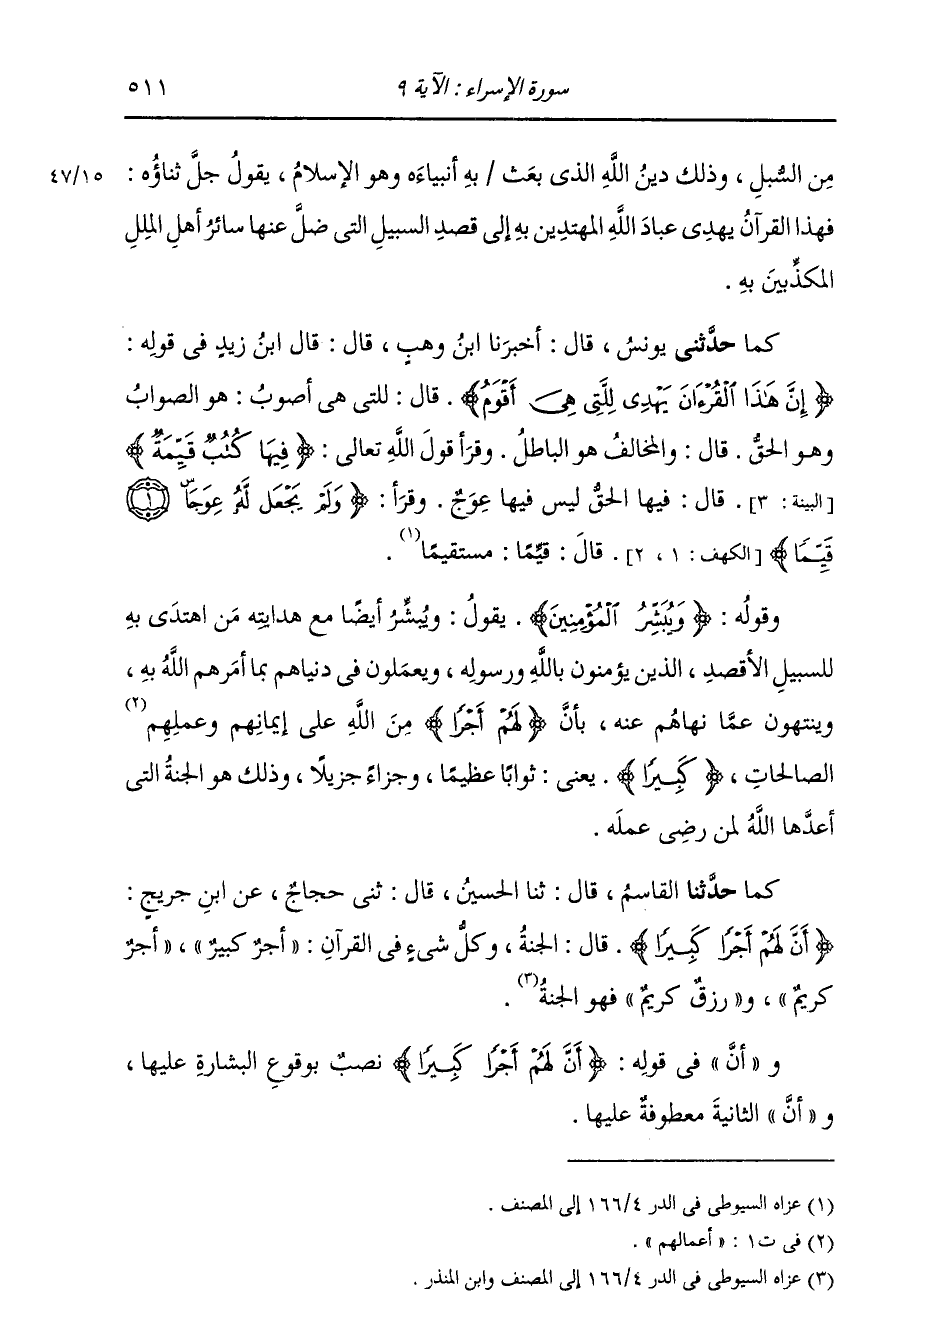 سورة الإسراء : الآية ٩ ٥١١
مِن السُّبلِ ، وذلك دينُ اللَّهِ الذى بعَث / بهِ أنبياءَه وهو الإسلامُ ، يقولُ جلَّ ثناؤُه : ٤٧/١٥
فهذا القرآنُ يهدِى عبادَ اللَّهِ المهتدِين بهِ إلى قصدِ السبيلِ التى ضلَّ عنها سائرُ أهلِ المللِ
المكذِّبينَ بهِ .
كما حدَّثنى يونسُ ، قال : أخبرَنا ابنُ وهبٍ ، قال : قال ابنُ زيدٍ فى قولِه :
﴿ إِنَّ هَٰذَا ٱلْقُرْءَانَ يَهْدِى لِلَّتِى هِىَ أَقْوَمُ ﴾ . قال : للتى هى أصوبُ : هو الصوابُ
وهو الحقُّ . قال : والمخالفُ هو الباطلُ . وقرَأ قولَ اللَّهِ تعالى : ﴿ فِيهَا كُتُبٌ قَيِّمَةٌ ﴾
[البينة : ٣] . قال : فيها الحقُّ ليس فيها عِوَجٌ . وقرَأ : ﴿ وَلَمْ يَجْعَل لَّهُ عِوَجَاۜ ۝١
قَيِّمًا ﴾ [الكهف : ١ ، ٢] . قالَ : قيِّمًا : مستقيمًا(١) .
وقولُه : ﴿ وَيُبَشِّرُ ٱلْمُؤْمِنِينَ ﴾ . يقولُ : ويُبشِّرُ أيضًا مع هدايتِه مَن اهتدَى بهِ
للسبيلِ الأقصدِ ، الذين يؤمنون باللَّهِ ورسولِه ، ويعمَلون فى دنياهم بما أمَرهم اللَّهُ بهِ ،
وينتهون عمَّا نهاهُم عنه ، بأنَّ ﴿ لَهُمْ أَجْرًا ﴾ مِنَ اللَّهِ على إيمانِهم وعملِهِم(٢)
الصالحاتِ ، ﴿ كَبِيرًا ﴾ . يعنى : ثوابًا عظيمًا ، وجزاءً جزيلًا ، وذلك هو الجنةُ التى
أعدَّها اللَّهُ لمن رضِى عملَه .
كما حدَّثنا القاسمُ ، قال : ثنا الحسينُ ، قال : ثنى حجاجٌ ، عن ابنِ جريجٍ :
﴿ أَنَّ لَهُمْ أَجْرًا كَبِيرًا ﴾ . قال : الجنةُ ، وكلُّ شىءٍ فى القرآنِ : « أجرٌ كبيرٌ » ، « أجرٌ
كريمٌ » ، و« رزقٌ كريمٌ » فهو الجنةُ(٣) .
و « أنَّ » فى قولِه : ﴿ أَنَّ لَهُمْ أَجْرًا كَبِيرًا ﴾ نصبٌ بوقوعِ البشارةِ عليها ،
و « أنَّ » الثانيةَ معطوفةٌ عليها .
(١) عزاه السيوطى فى الدر ١٦٦/٤ إلى المصنف .
(٢) فى ت١ : « أعمالهم » .
(٣) عزاه السيوطى فى الدر ١٦٦/٤ إلى المصنف وابن المنذر .